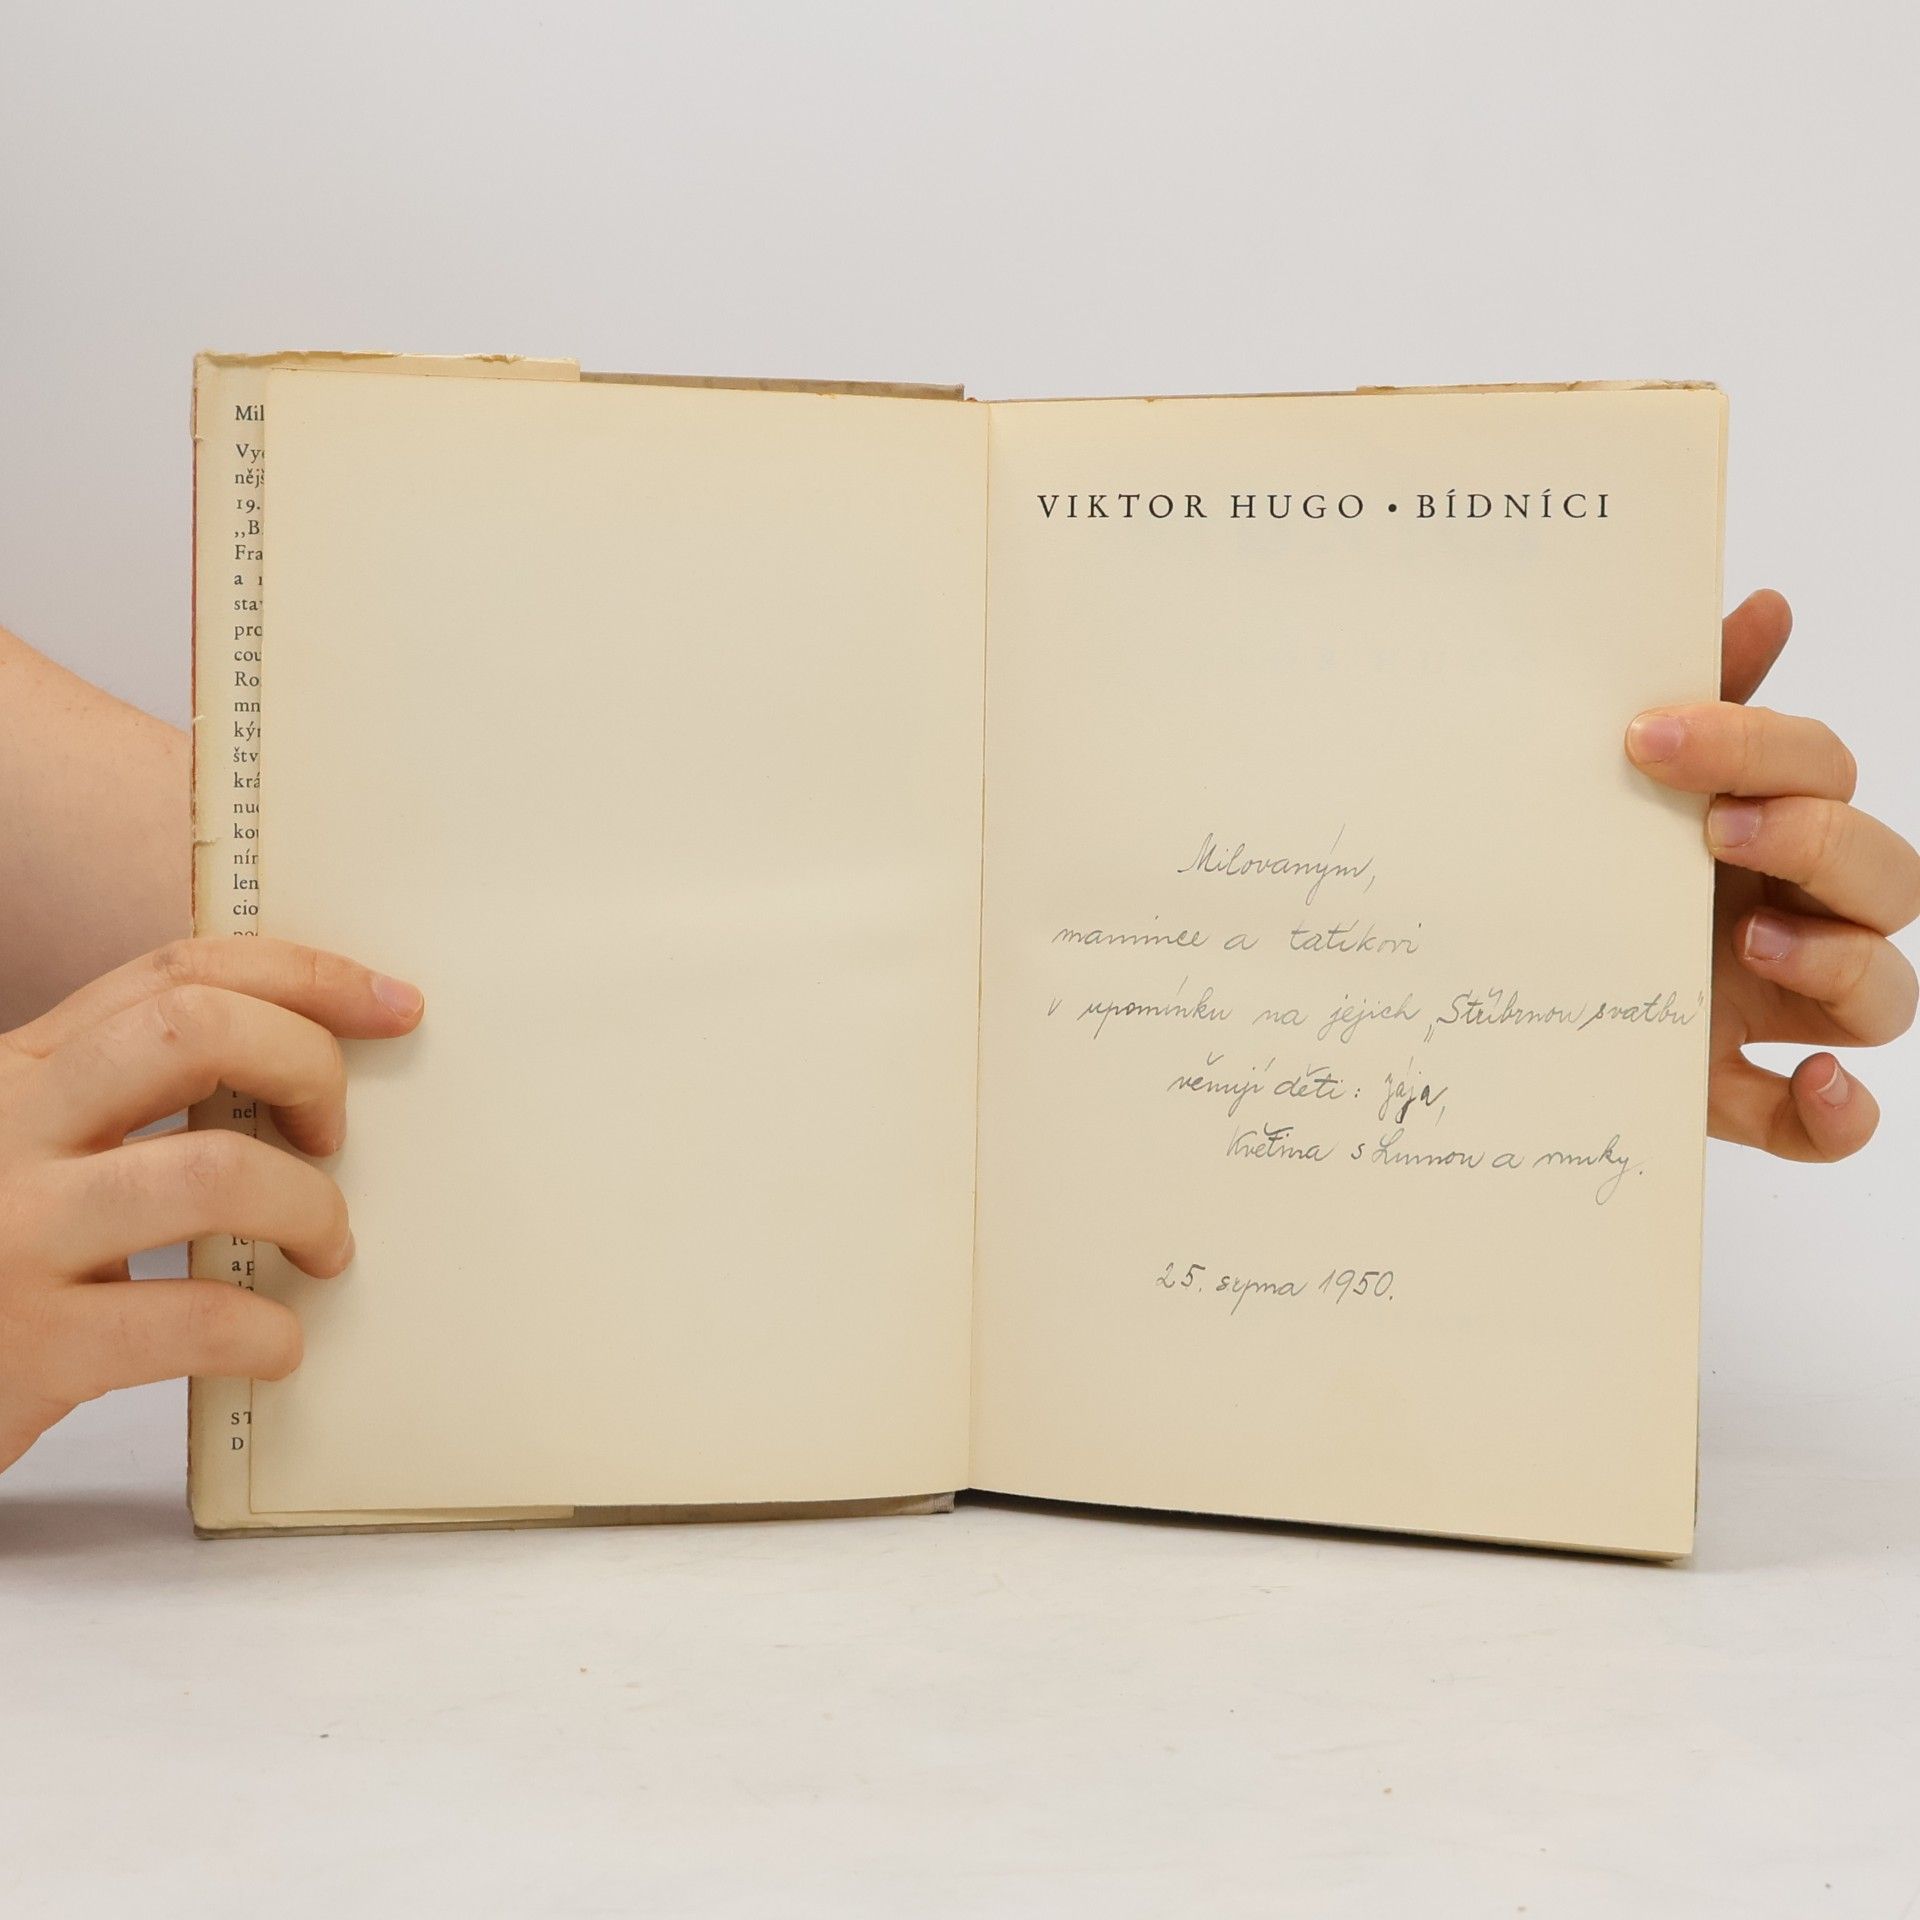 Mil
Vyd
nějš
19.
„B
Fra
a
sta
pro
cou
Ro
mn
kýr
štv
krá
nuc
kou
nír
len
cio
nel
a p
ST
D
VIKTOR HUGO • BÍDNÍCI
Milovaným,
mamince a tatíkovi
v upomínku na jejich „Stříbrnou svatbu"
věnují děti: Jája,
Květina s Lumou a vnuky.
25. srpna 1950.